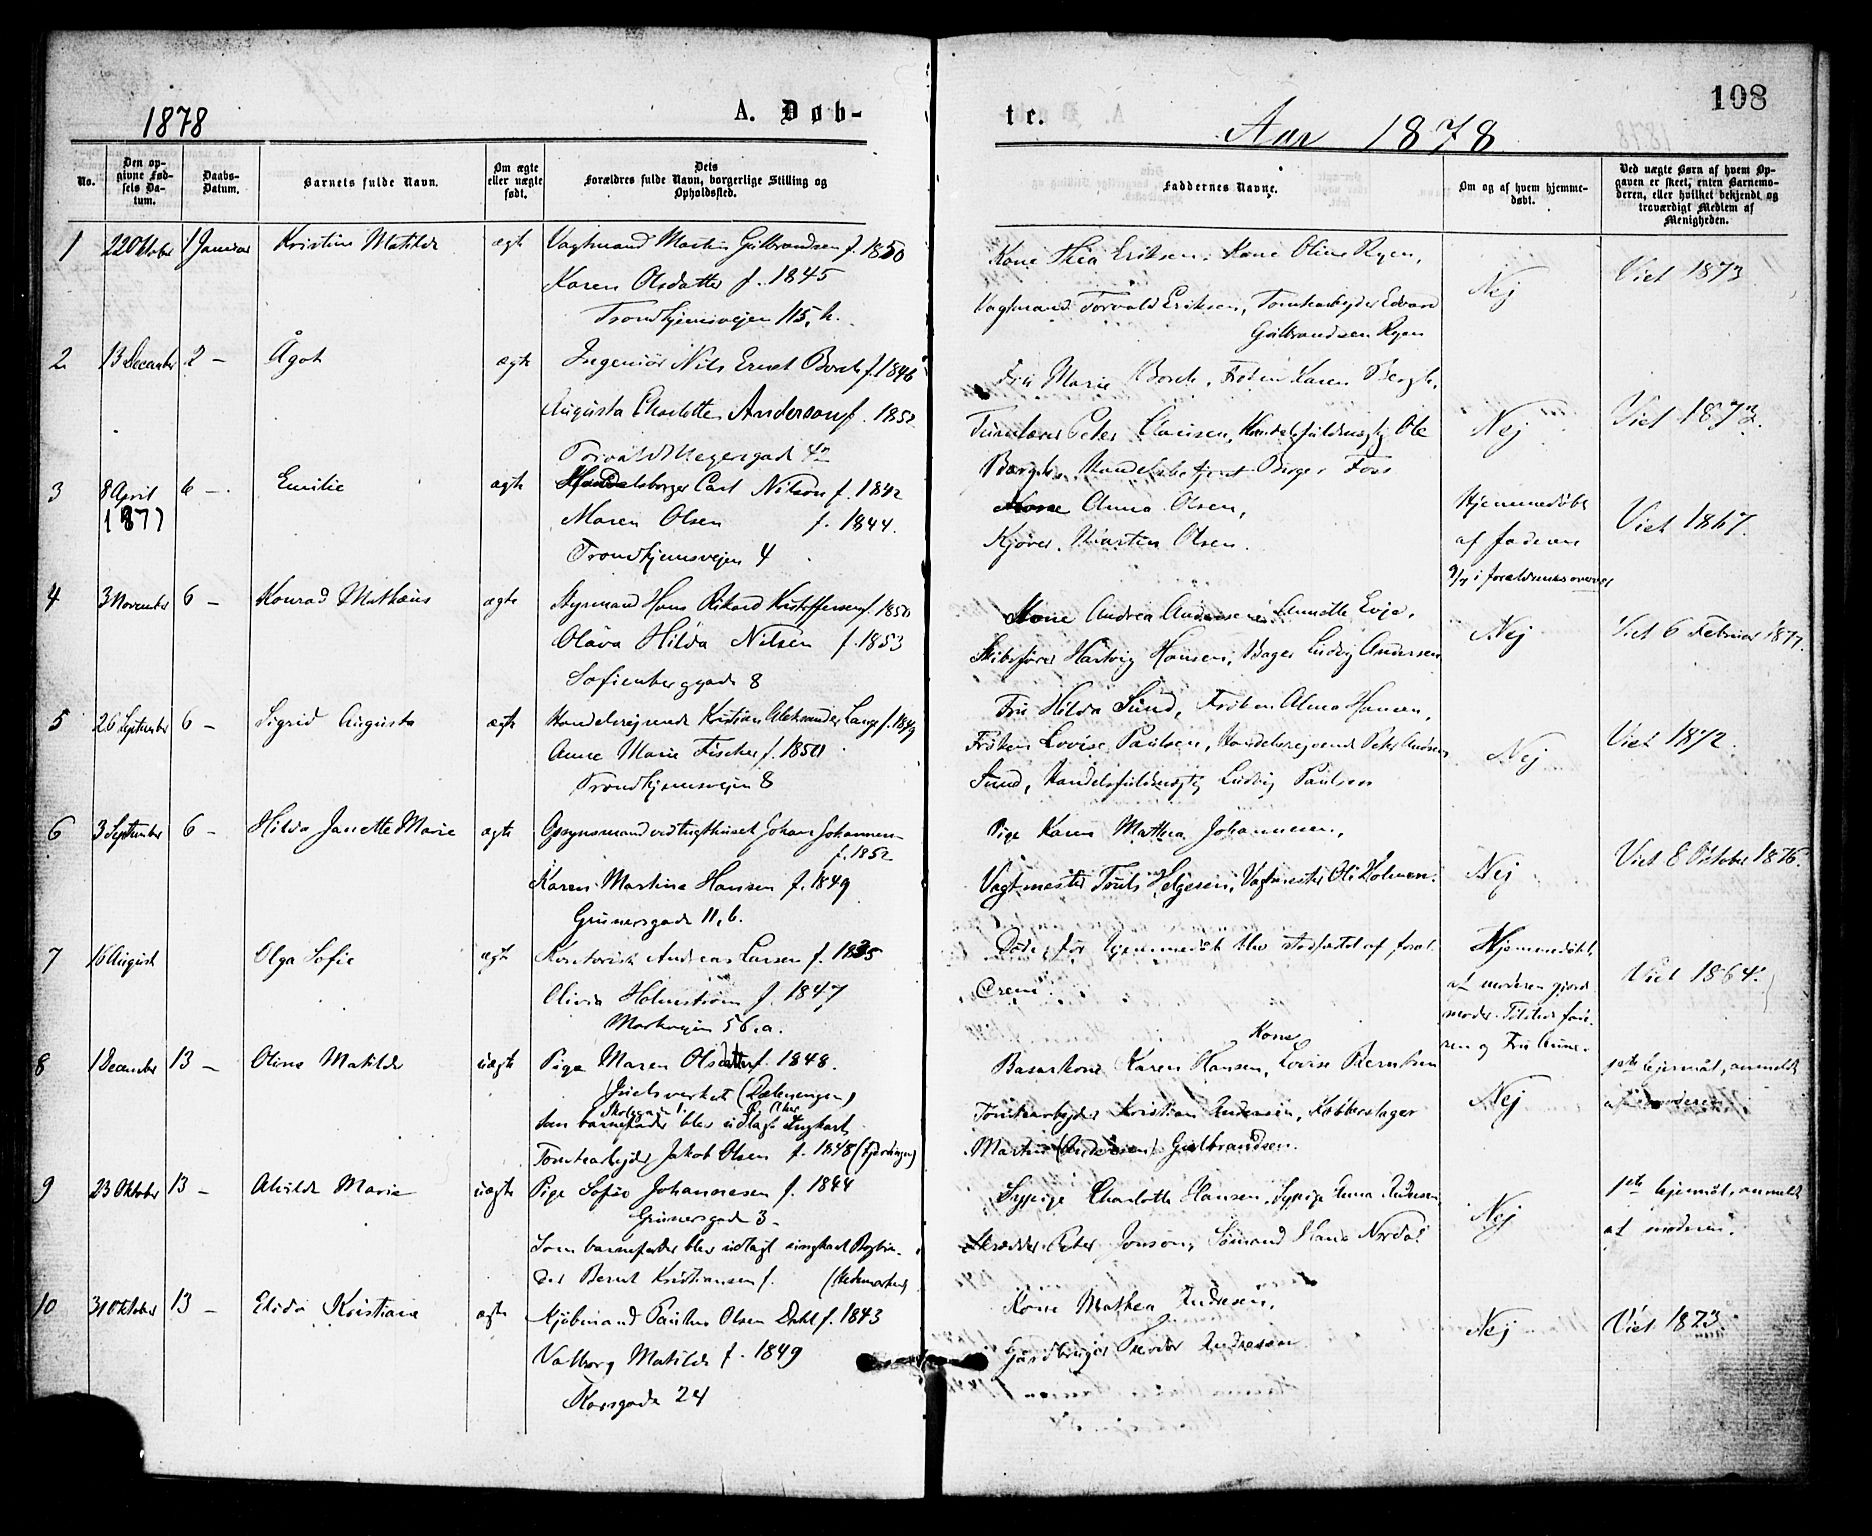 1878
A. Døb-
No.
Den op-
givne Fød-
sels Da-
tum.
Daabs-
Datum.
Barnets fulde Navn.
Om ægte
eller uægte
født.
Dets
Forældres fulde Navn, borgerlige Stilling og
Opholdssted.
1 22 Oktober 1 Januar Kristine Matilde ægte Vagtmand Martin Gulbrandsen f. 1850
Karen Olsdatter f. 1845
Trondhjemsvejen 115, h.
2 13 December 2 – Ågot ægte Ingeniør Nils Ernst Borch f. 1846
Augusta Charlotte Anderson f. 1852
Torvald Meyersgade 42
3 8 April 6 – Emilie ægte Handelsborger Carl Nilson f. 1842
1877 Maren Olsen f. 1844.
Trondhjemsvejen 4
4 3 November 6 – Konrad Mathæus ægte Styrmand Hans Rikard Kristoffersen f. 1850
Olava Hilda Nilsen f. 1853
Sofienberggade 8
5 26 September 6 – Sigrid Augusta ægte Handelsrejsende Kristian Aleksander Lange f. 1849
Anne Marie Fischer f. 1850
Trondhjemsvejen 8
6 3 September 6 – Hilda Janette Marie ægte Opsynsmand ved Tugthuset Johan Johannesen
f. 1852
Karen Martina Hansen f. 1849
Grünersgade 11, b.
7 16 August Olga Sofie ægte Kontorist Andreas Larsen f. 1835
Olivia Holmstrøm f. 1847
Markvejen 56, a.
8 1 December 13 – Oline Matilde uægte Pige Maren Olsdatter f. 1848.
Juelsverket (Dælenengen)
Som barnefader blev udlagt Ungkarl
Tomtearbejder Jakob Olsen f. 1848 (Fjerdingen)
9 23 Oktober 13 – Alvilde Marie uægte Pige Sofie Johannesen f. 1844
Grünersgade 3 –
Som barnefader blev udlagt ungkarl Bogbin-
der Bernt Kristiansen f. (Hedemarken)
10 31 Oktober 13 – Elida Kristiane ægte Kjøbmand Paulus Olsen Dehl f. 1843
Valborg Matilde f. 1849
Korsgade 24
108
te.
Aar 1878
Faddernes Navne.
Om og af hvem hjemme-
døbt.
Ved uægte Børn af hvem Op-
gaven er skeet, enten Barnemo-
deren, eller hvilket bekjendt og
troværdigt Medlem af
Menigheden.
Kone Thea Eriksen, Kone Oline Ryen,
Vagtmand Torvald Eriksen, Tomtearbejder Edvard
Gulbrandsen Ryen
Nej
Viet 1873
Fru Marie Borch, Frøken Karen Bergh,
Peter Clausen, Handelsfuldmægtig Ole
Bergh, Handelsbetjent Birger Foss
Nej
Viet 1873.
Kone Anna Olsen,
Kjører Martin Olsen.
Hjemmedøbt
af faderen
9/4 i forældrenes overvær
Viet 1867.
Kone Andrea Andersen, Annette Evje,
Skibsfører Hartvig Hansen, Bager Ludvig Andersen
Nej
Viet 6 Februar 1877.
Fru Hilda Sund, Frøken Alma Hansen,
Frøken Lovise Paulsen, Handelsrejsende Peter
Sund, Handelsfuldmægtig Ludvig Paulsen
Nej
Viet 1872.
Pige Karen Mathea Johannesen,
Vagtmester Truls Helgesen, Vagtmester Ole Holmen.
Nej
Viet 8 Oktober 1876.
Døde, før hjemmedåb blev stadfæstet af foræl-
drene
Hjemmedøbt
af moderen
Viet 1864.
Kone
Karen Hansen, Lovise Berntsen
Tomtearbejder Kristian Andersen, Kobberslager
Martin (Andersen) Gulbrandsen.
Nej
1ste lejermål, anmeldt
af moderen
Sypige Charlotte Hansen, Sypige Anna Andersen
Skrædder Peter Jonson, Sømand Hans Nordal
Nej
1ste lejermål, anmeldt
af moderen.
Kone Mathea Andresen,
Gårdbruger Teodor Andresen
Nej
Viet 1873